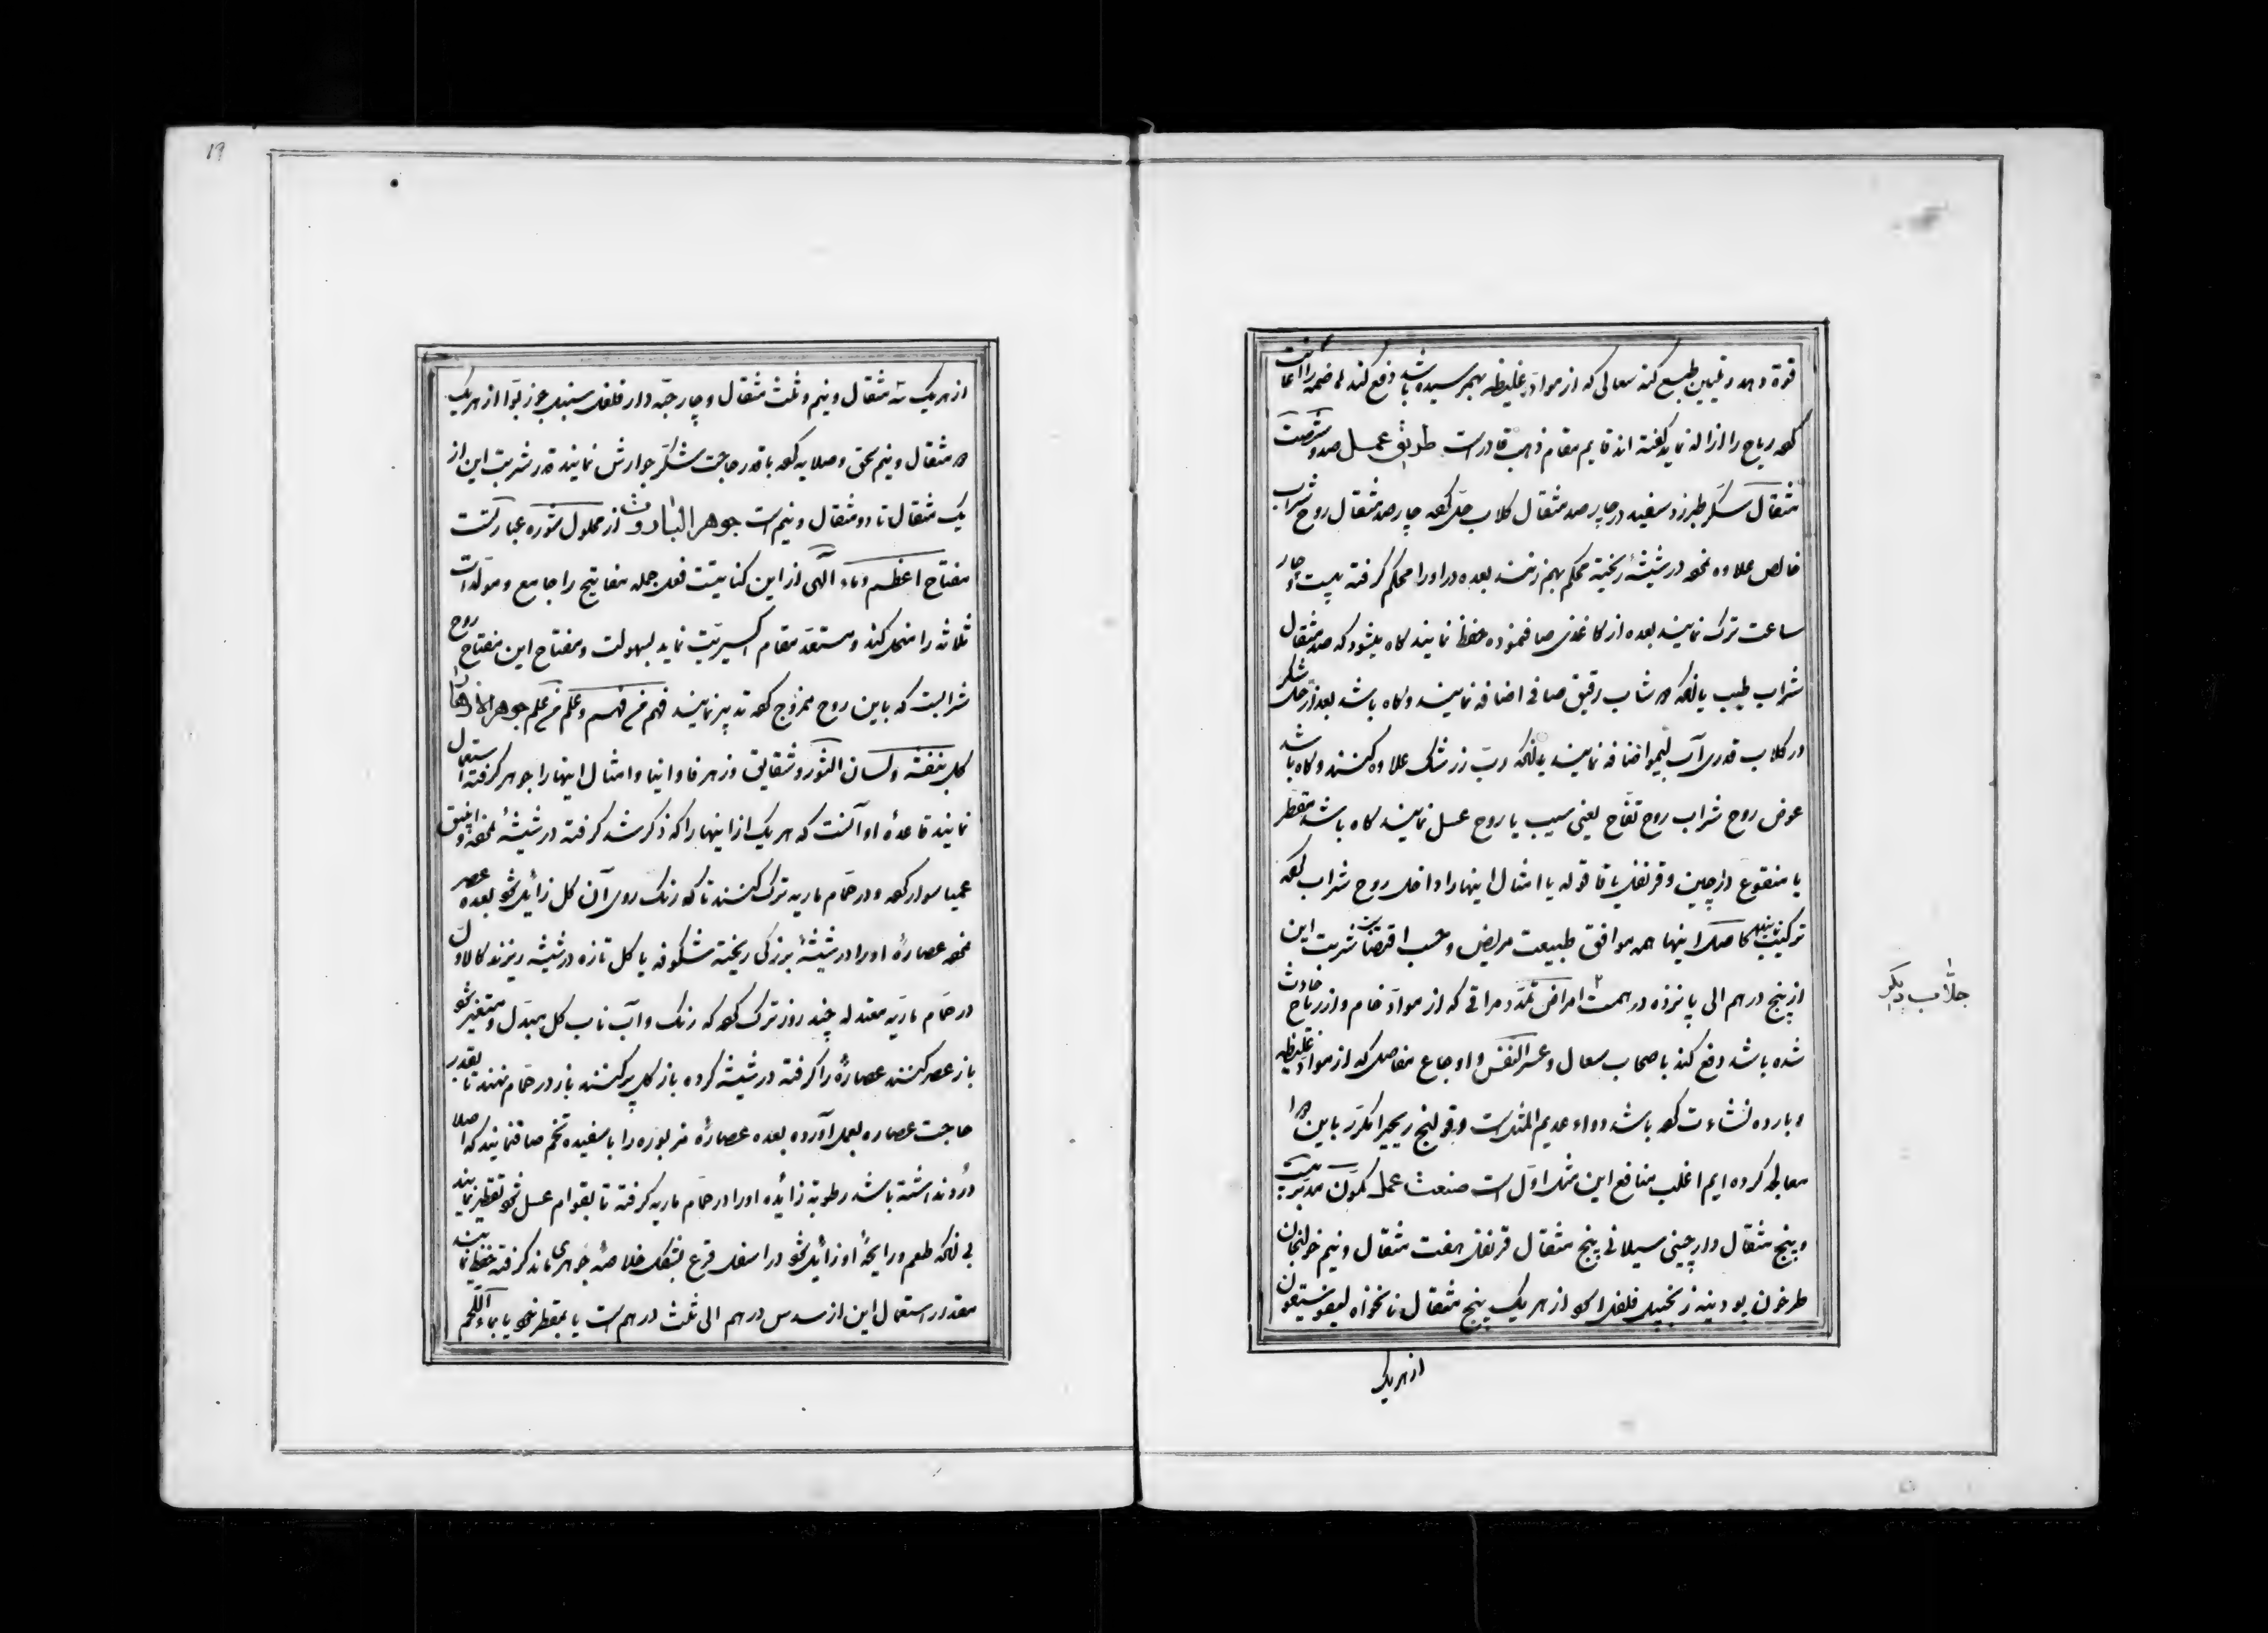 قوة دهد و تلیین طبع کند سعالی که از مواد غلیظه بهمرسیده باشد دفع کند هاضمه را اعانت
کوه ریاح را ازاله نماید گفته اند قایم مقام ذهب قادرست طریق عمل صد و شصت
مثقال سکر طبرزد سفید در چار صد مثقال کلاب حل کوه چار صد مثقال روح شراب
خالص علاوه نموه در شیشهٔ ریخته محکم بهم زنند بعده در او را محکم گرفته بیست و چار
ساعت ترک نمایند بعده از کاغذی صاف نموده حفظ نمایند کاه میشود که صد مثقال
شراب طیب یا آنکه شاب رقیق صافی اضافه نمایند و کاه باشد بعد از حل شکر
در کلاب قدری آب لیمو اضافه نمایند یا آنکه رب زرشک علاوه کنند و کاه باشد
عوض روح شراب روح تفاح یعنی سیب یا روح عسل نمایند کاه باشد مقطر
یا منقوع دارچین و قرنفل یا قاقوله یا امثال اینها را داخل روح شراب کوه
ترکیب نمایند حاصل اینها همه موافق طبیعت مریض و حسب اقتضاست شربت این
از پنج درهم الی پانزده درهمست امراض تمدد مراقی که از مواد خام و از ریاح حادث
شده باشد دفع کند باصحاب سعال و عسر النفس و اوجاع مفاصل که از مواد غلیظه
و بارده نشاءت کوه باشد دواء عدیم المثل است و قولنج ریحی را مکرر باین دوا
معالجه کرده ایم اغلب منافع این مثل اول است صنعت عمل کمون مدبر بیست
و پنج مثقال دارچینی سیلانی پنج مثقال قرنفل هفت مثقال و نیم خولنجان
طرخون پودینه زنجبیل فلفل از هر یک پنج مثقال نانخواه
از هریک
جلاب دیگر
19
از هریک سه مثقال و نیم و ثلث مثقال و چار حبه دار فلفل سنبل جوز بوّا از هریک
دو مثقال و نیم سحق و صلایه کوه با قدر حاجت شکر جوارش نمایند قدر شربت این از
یک مثقال تا دو مثقال و نیم است جوهر البارود از محلول شوره عبارتست
مفتاح اعظم و ماء آلهی از این کنایتست فعل جمله مفاتیح را جامع و مولدات
ثلاثه را منحل کند و مستعد مقام اکسیریت نماید بسهولت و مفتاح این مفتاح روح
شرابست که باین روح ممزوج کوه تدبیر نمایند فهم من فهم و علم من علم جوهر الازهار
کل بنفشه و لسان الثور و شقایق و زهر فاوانیا و امثال اینها را جوهر گرفته استعمال
نمایند قاعدهٔ او آنست که هر یک از اینها را که ذکر شد گرفته در شیشهٔ نموه و انبیق
عمیا سوار کوه و در حمام ماریه ترک کنند تا که رنک روی آن کل زائل شود بعده عصر
نموه عصارهٔ او را در شیشهٔ بزرکی ریخته شکوفه یا کل تازه در شیشه ریزند کالاول
در حمام ماریه معتدله چند روز ترک کوه که رنک و آب ناب کل مبدل و متغیر شود
باز عصر کنند عصاره را گرفته در شیشه کرده باز کل پر کنند باز در حمام نهند تا بقدر
حاجت عصاره بعمل آورده بعده عصارهٔ مزبوره را با سفیده تخم صاف نمایند که اصلا
درد نداشته باشد رطوبة زائده او را در حمام ماریه گرفته تا بقوام عسل شود تقطیر نمایند
بی آنکه طعم و رایحهٔ او زائل شود در اسفل قرع بشکل خلاصهٔ جوهری ماند گرفته حفظ نمایند
مقدار استعمال این از سدس درهم الی ثلث درهم است یا بمقطر خود یا بماء اللحم